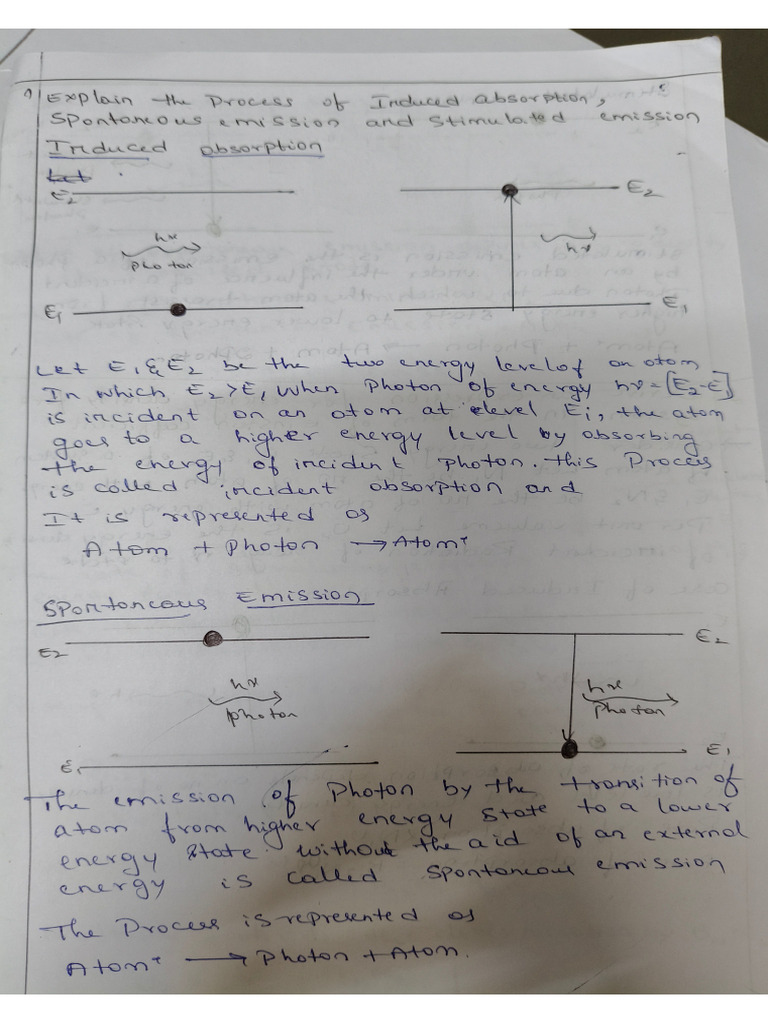 1 Explain the Process of Induced absorption,
Spontaneous emission and Stimulated emission
Induced absorption
Let
E2
E2
hν
photon
hν
E1
E1
Let E1 & E2 be the two energy level of an atom
In which E2>E1 when Photon of energy hν = [E2-E1]
is incident on an atom at level Ei, the atom
goes to a higher energy level by absorbing
the energy of incident photon. this Process
is called incident absorption and
It is represented as
Atom + Photon → Atom*
Spontaneous Emission
E2
E2
hν
photon
hν
Photon
E1
E1
The emission of Photon by the transition of
atom from higher energy state to a lower
energy state without the aid of an external
energy is called spontaneous emission
The Process is represented as
Atom* → Photon + Atom.